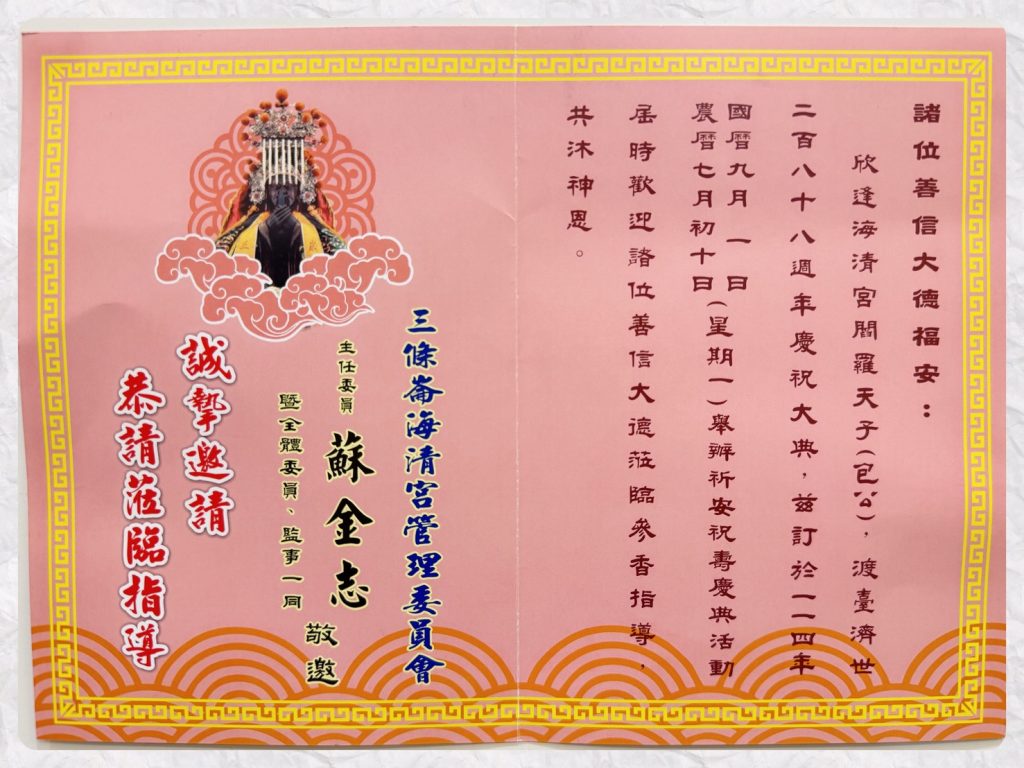 諸位善信大德福安：
欣逢海清宮閻羅天子(包公)，渡臺濟世
二百八十八週年慶祝大典，茲訂於一一四年
國曆九月一日
農曆七月初十日
(星期一)舉辦祈安祝壽慶典活動
屆時歡迎諸位善信大德蒞臨參香指導，
共沐神恩。
三條崙海清宮管理委員會
主任委員 蘇金志
暨全體委員、監事一同
敬邀
誠摯邀請
恭請蒞臨指導